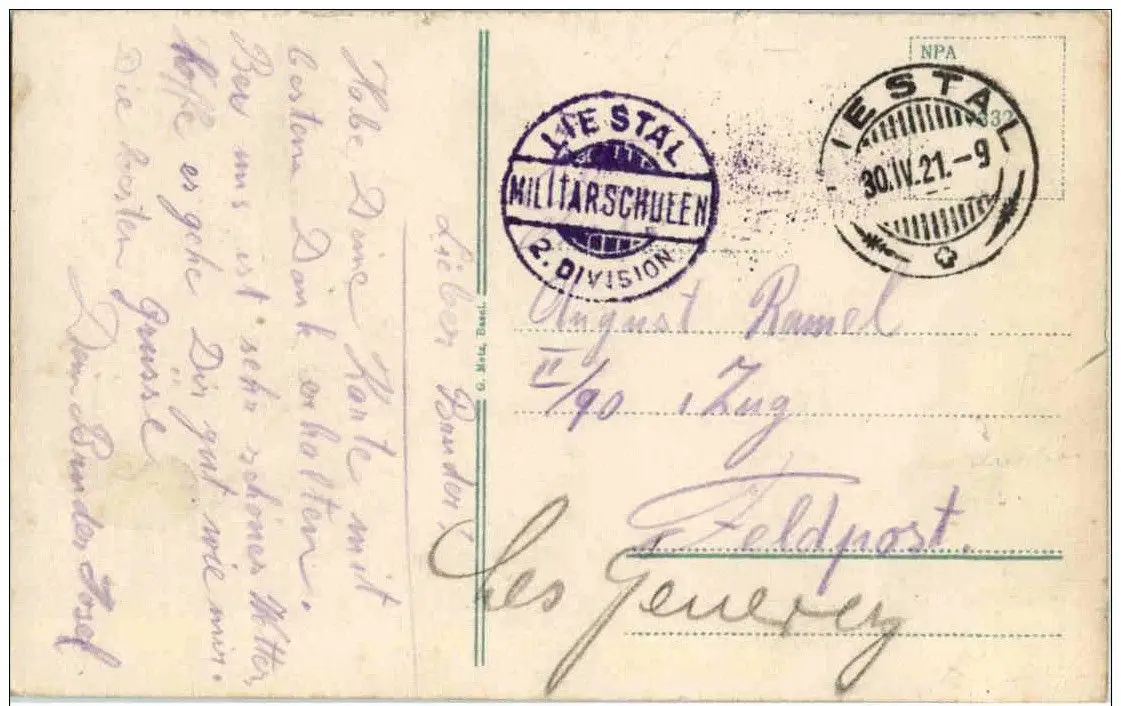 Lieber Bruder,
Habe Deine Karte mit
bestem Dank erhalten.
Bei uns ist sehr schönes Wetter,
Hoffe es gehe Dir gut wie mir.
Die besten Grüsse
Dein Bruder Josef
G. Metz, Basel.
LIESTAL
MILITÄRSCHULEN
2. DIVISION
NPA
IESTAL
30.IV.21.-9
August Ramel
II/90 1 Zug
Feldpost.
Les